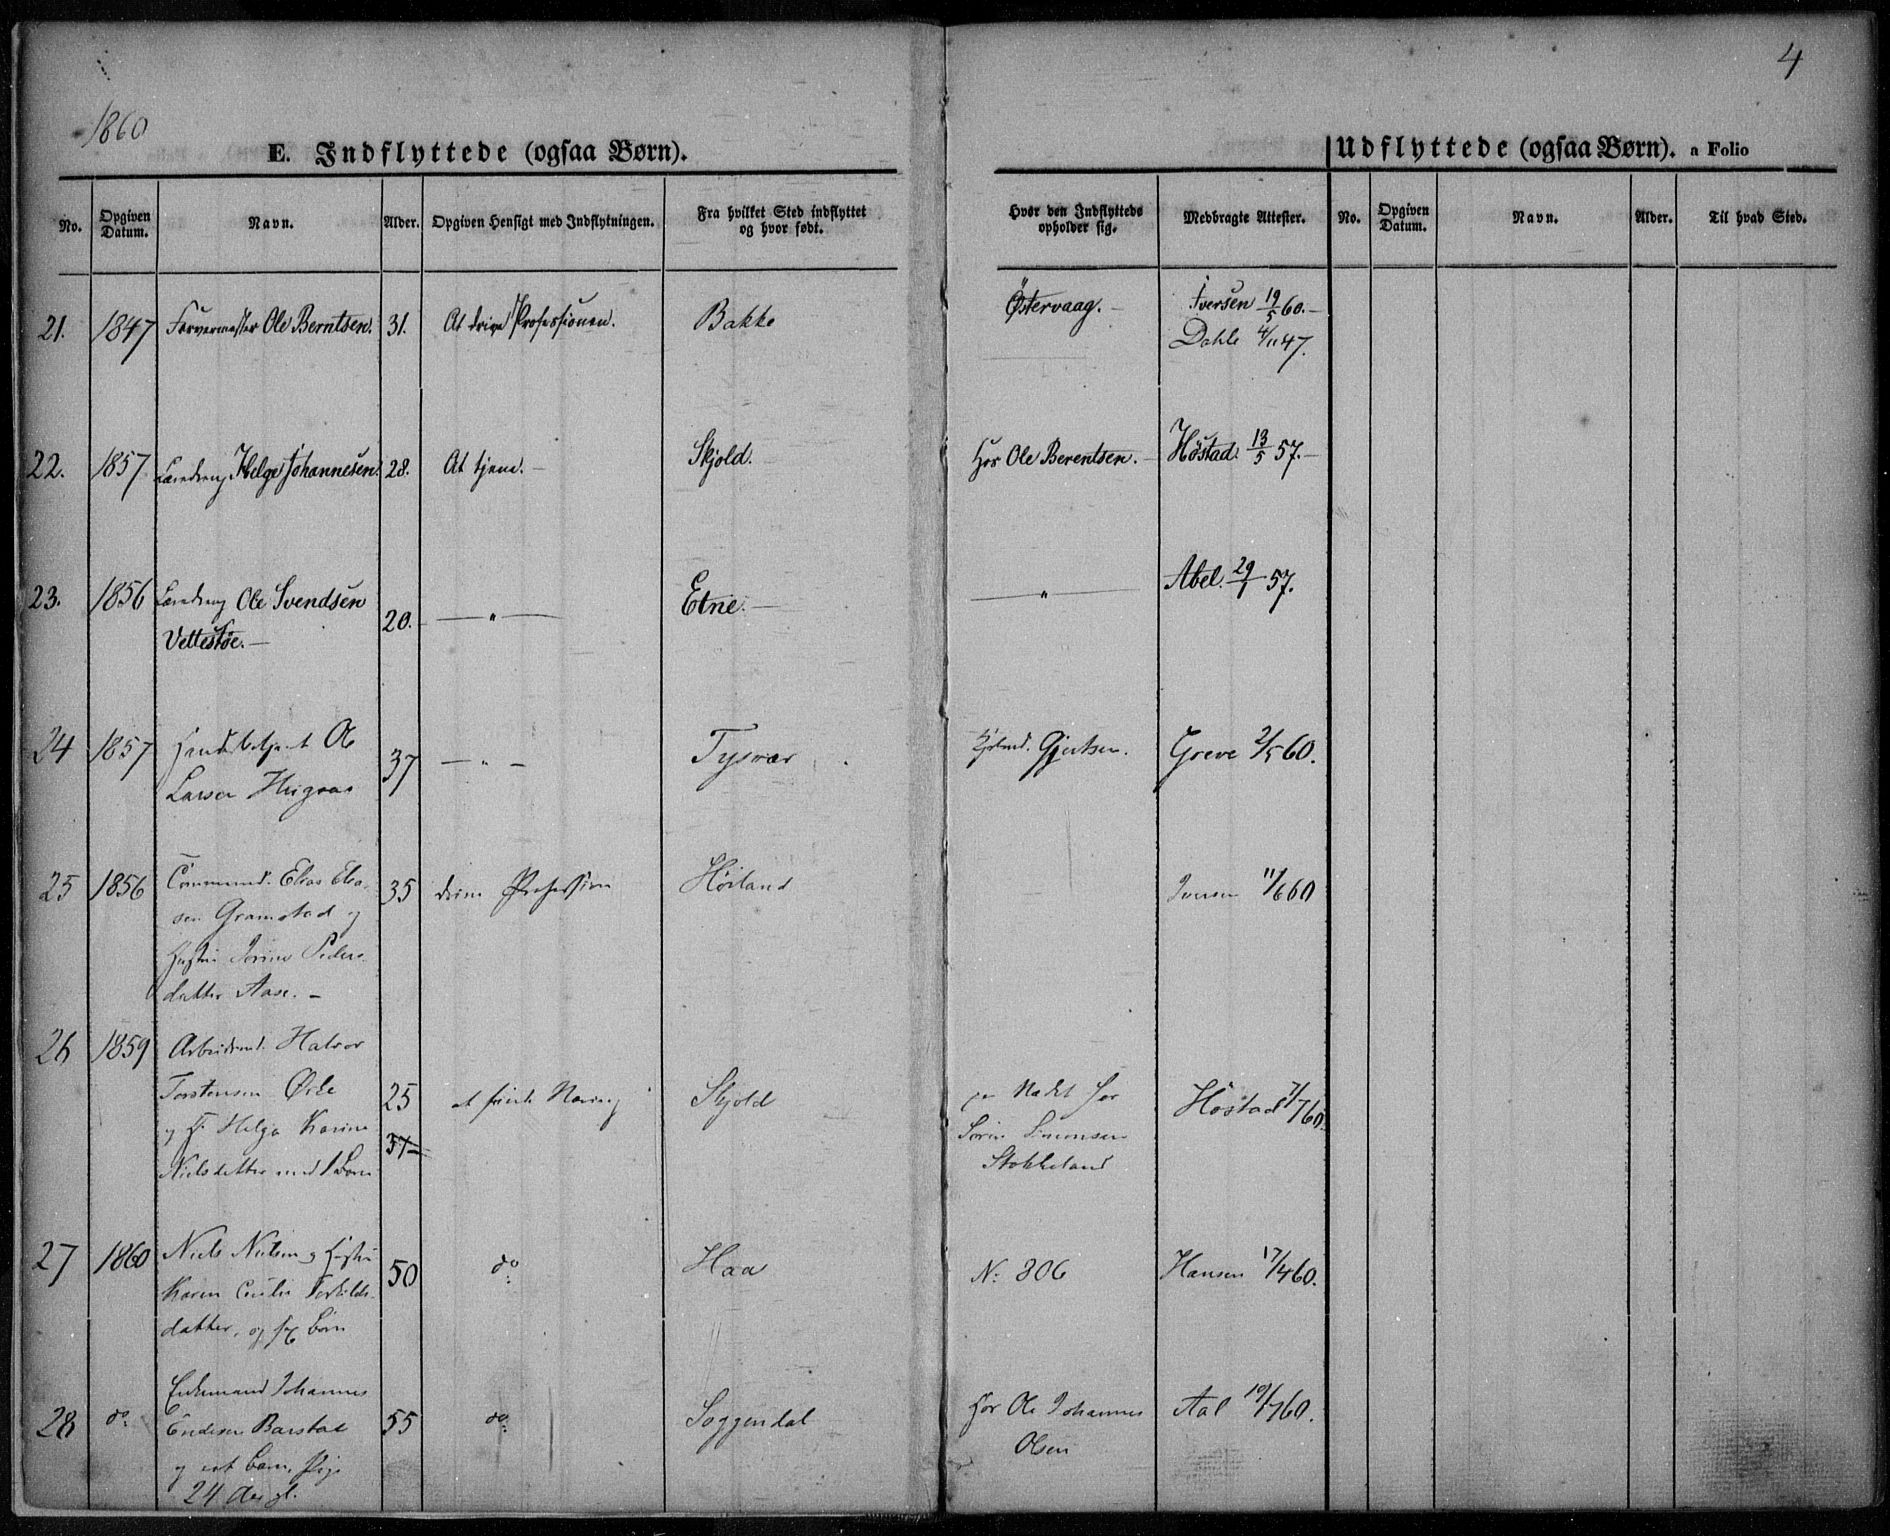 4
1860
E. Indflyttede (ogsaa Børn).
Udflyttede (ogsaa Børn). a Folio
No.
Opgiven Datum.
Navn.
Alder.
Opgiven Hensigt med Indflytningen.
Fra hvilket Sted indflyttet og hvor født.
Hvor den Indflyttede opholder sig.
Medbragte Attester.
No.
Opgiven Datum.
Navn.
Alder.
Til hvad Sted.
21. 1847 Farvermester Ole Berntsen. 31. At drive Professionen. Bakke Østervaag. Iversen 19/5 60.
Dahle 4/11 47.
22. 1857 Læredreng Helge Johannesen. 28. At tjene. Skjold. Hos Ole Berentsen. Høstad. 13/5 57.
23. 1856 Læredreng Ole Svendsen 20. " Etne. " Abel. 29/1 57.
Vettestøe.
24 1857 Ole 37 " Tysvær Gjertsen. Greve 2/5 60.
Larsen
25 1856 Elias Elia- 35 drive Profession Høiland Iversen 11/6 60
sen Gramstad og
Hustru Serine Peders-
datter Aase.
26 1859 Arbeidsmd. Halvor
Torstensen 25 at finde Næring Skjold hos Høstad 7/7 60.
og H. Helga Karine 37 Simonsen
Nielsdatter med 1 Barn Stokkeland
27 1860 Niels Nielsen og Hustru 50 do Haa N: 806 Hansen 17/4 60.
Karen Terkilds-
datter, og sex Børn
28 do Enkemand Johannes 55 do Soggendal Hos Ole Johannes Aal 19/7 60.
Endresen Barstad Olsen
og et Barn, Pige
24